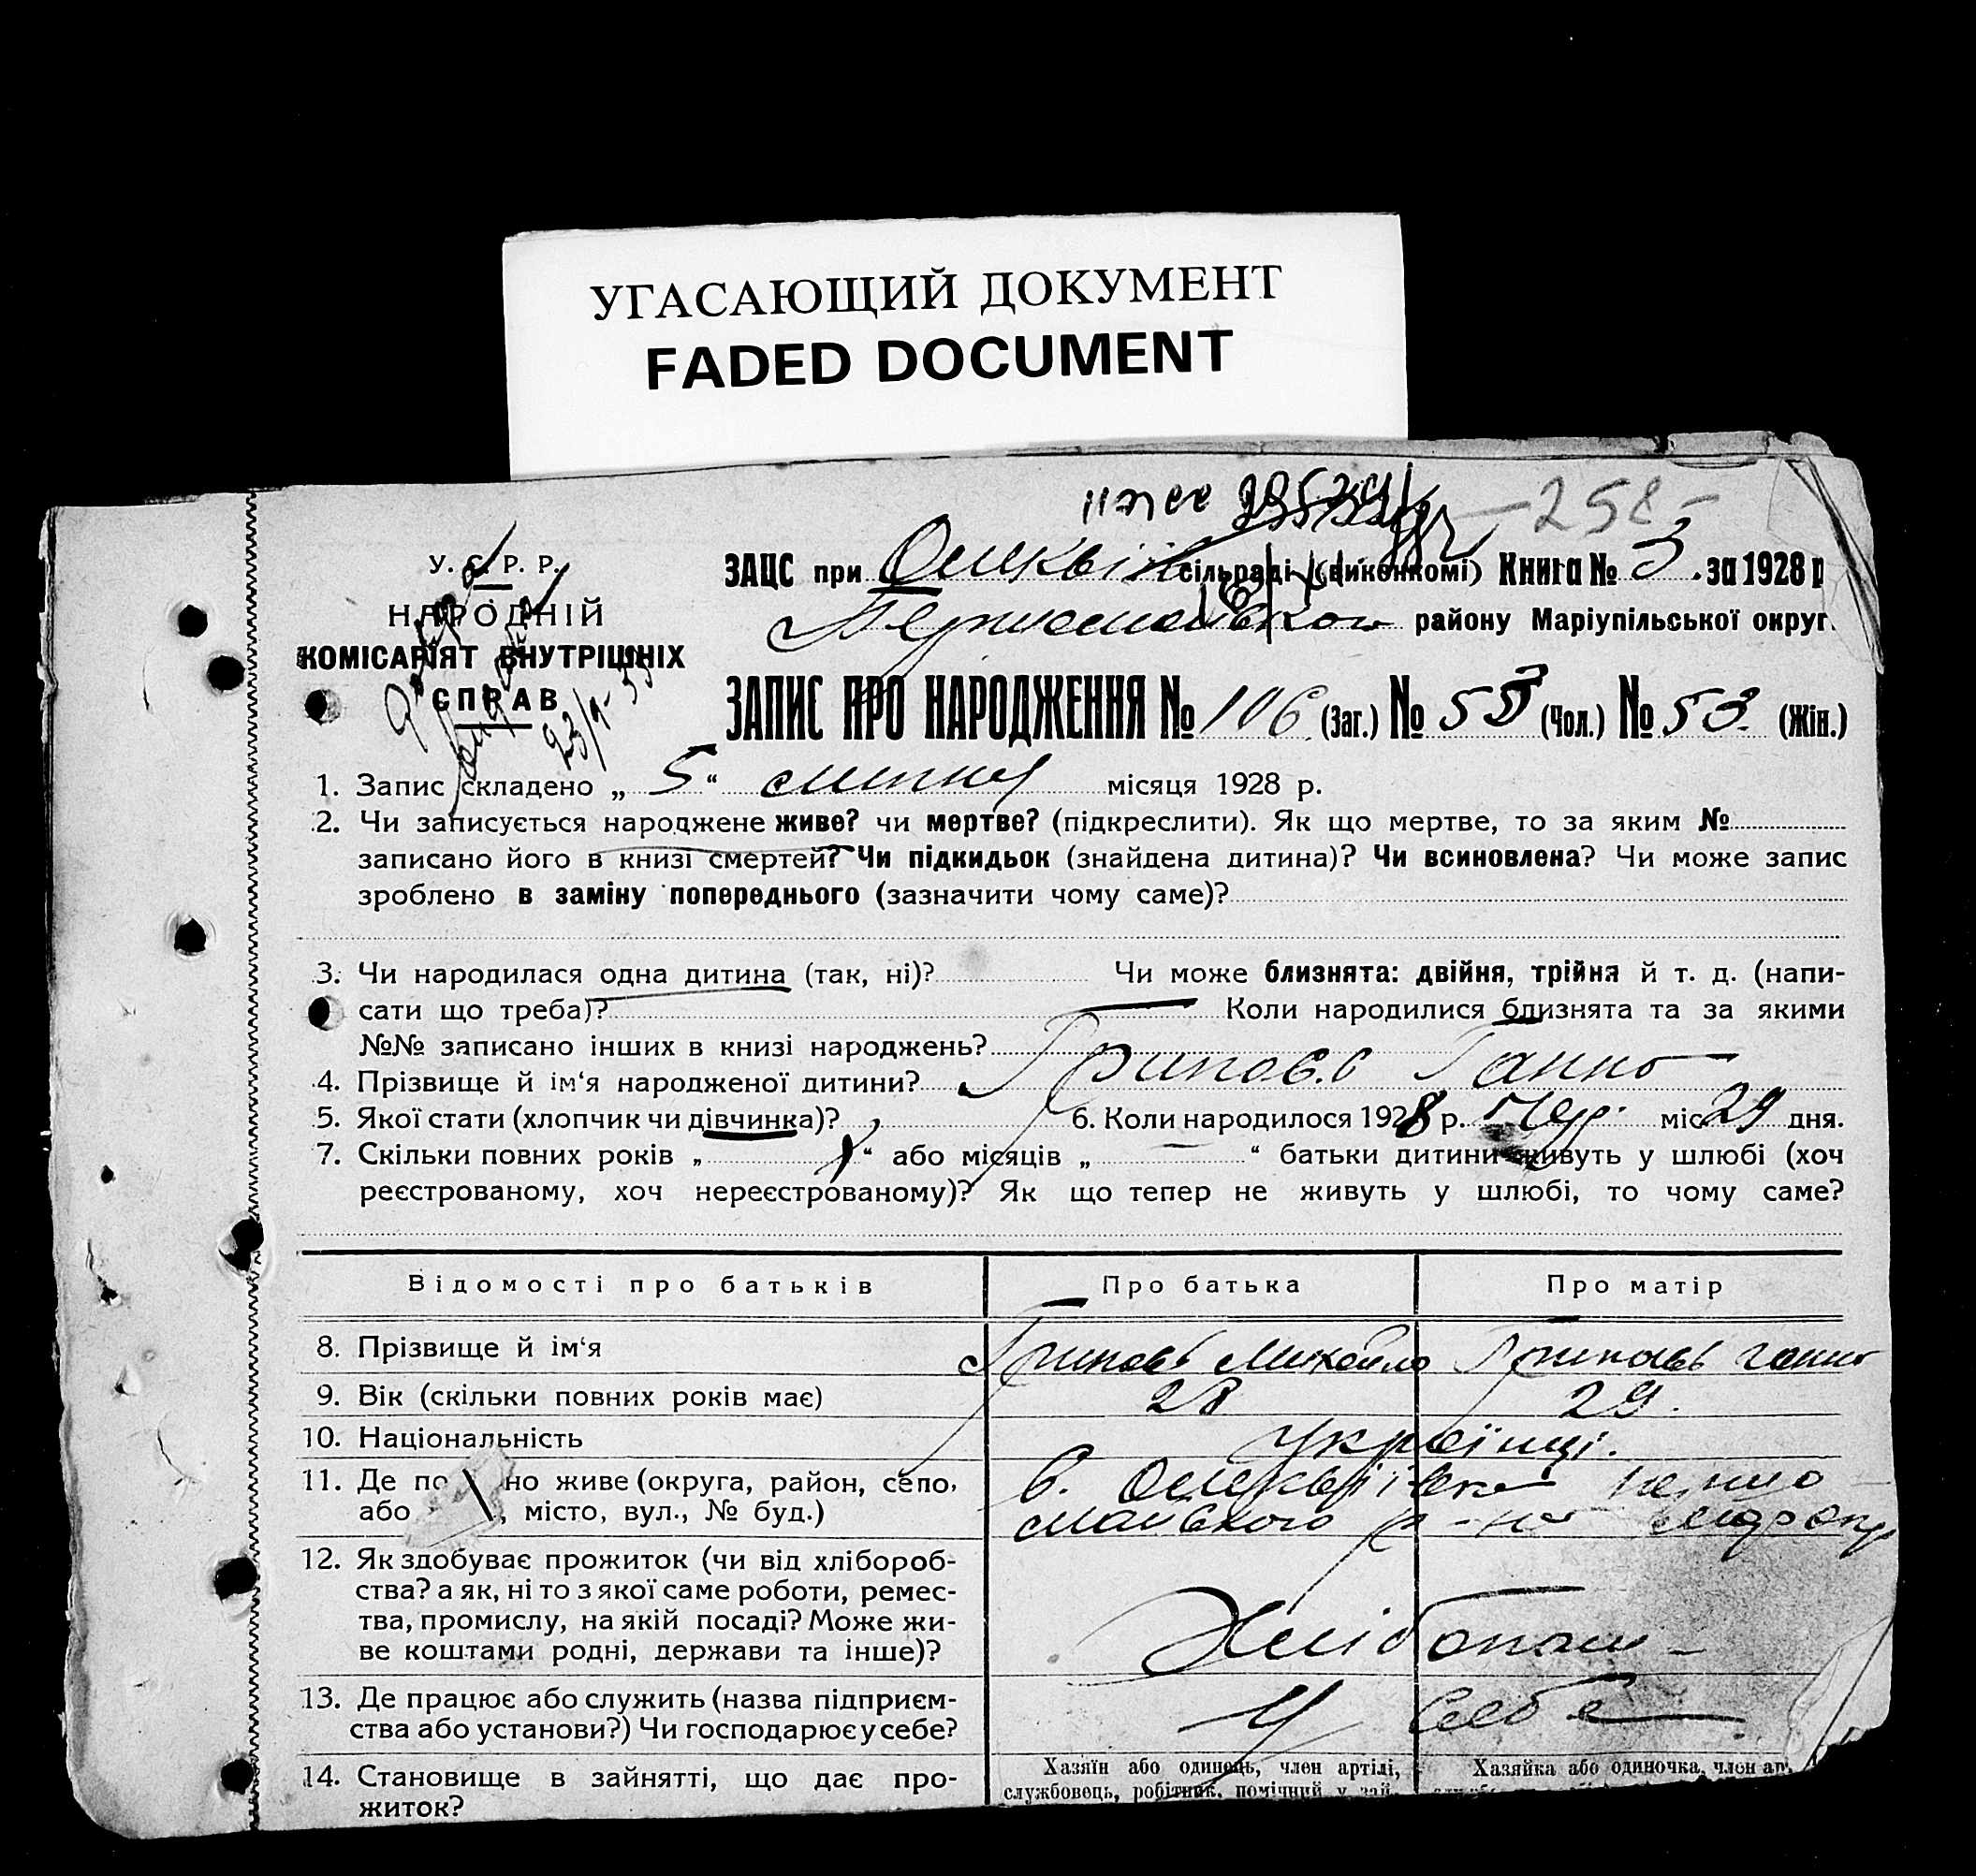 УГАСАЮЩИЙ ДОКУМЕНТ
FADED DOCUMENT
-258-
У. С. Р. Р.
НАРОДНІЙ
КОМІСАРІЯТ ВНУТРІШНІХ
СПРАВ
23/
ЗАЦС при сільраді (виконкомі) Книга № 3 . за 1928 р
району Маріупільської округ.
ЗАПИС ПРО НАРОДЖЕННЯ № 106 (Заг.) № 53 (Чол.) № 53. (Жін.)
1. Запис складено „ 5 “ липня місяця 1928 р.
2. Чи записується народжене живе? чи мертве? (підкреслити). Як що мертве, то за яким №
записано його в книзі смертей? Чи підкидьок (знайдена дитина)? Чи всиновлена? Чи може запис
зроблено в заміну попереднього (зазначити чому саме)?
3. Чи народилася одна дитина (так, ні)? Чи може близнята: двійня, трійня й т. д. (напи-
сати що треба)? Коли народилися близнята та за якими
№№ записано інших в книзі народжень?
4. Прізвище й ім‘я народженої дитини? Ганна
5. Якої стати (хлопчик чи дівчинка)? 6. Коли народилося 1928 р. Чер. міс 29 дня.
7. Скільки повних років „ “ або місяців „ “ батьки дитини живуть у шлюбі (хоч
реєстрованому, хоч нереєстрованому)? Як що тепер не живуть у шлюбі, то чому саме?
Відомості про батьків Про батька Про матір
8. Прізвище й ім‘я Михайло Ганна
9. Вік (скільки повних років має) 28 29.
10. Національність Українці.
11. Де по но живе (округа, район, село,
або , місто, вул., № буд.)
майського р-на
12. Як здобуває прожиток (чи від хлібороб-
ства? а як, ні то з якої саме роботи, ремес-
тва, промислу, на якій посаді? Може жи-
ве коштами родні, держави та інше)?
Хлібопаш
13. Де працює або служить (назва підприєм-
ства або установи?) Чи господарює у себе?
У себе
14. Становище в зайнятті, що дає про-
житок?
Хазяїн або одинець, член артілі,
службовець, робітник, помічний у зай-
Хазяйка або одиночка, член ар